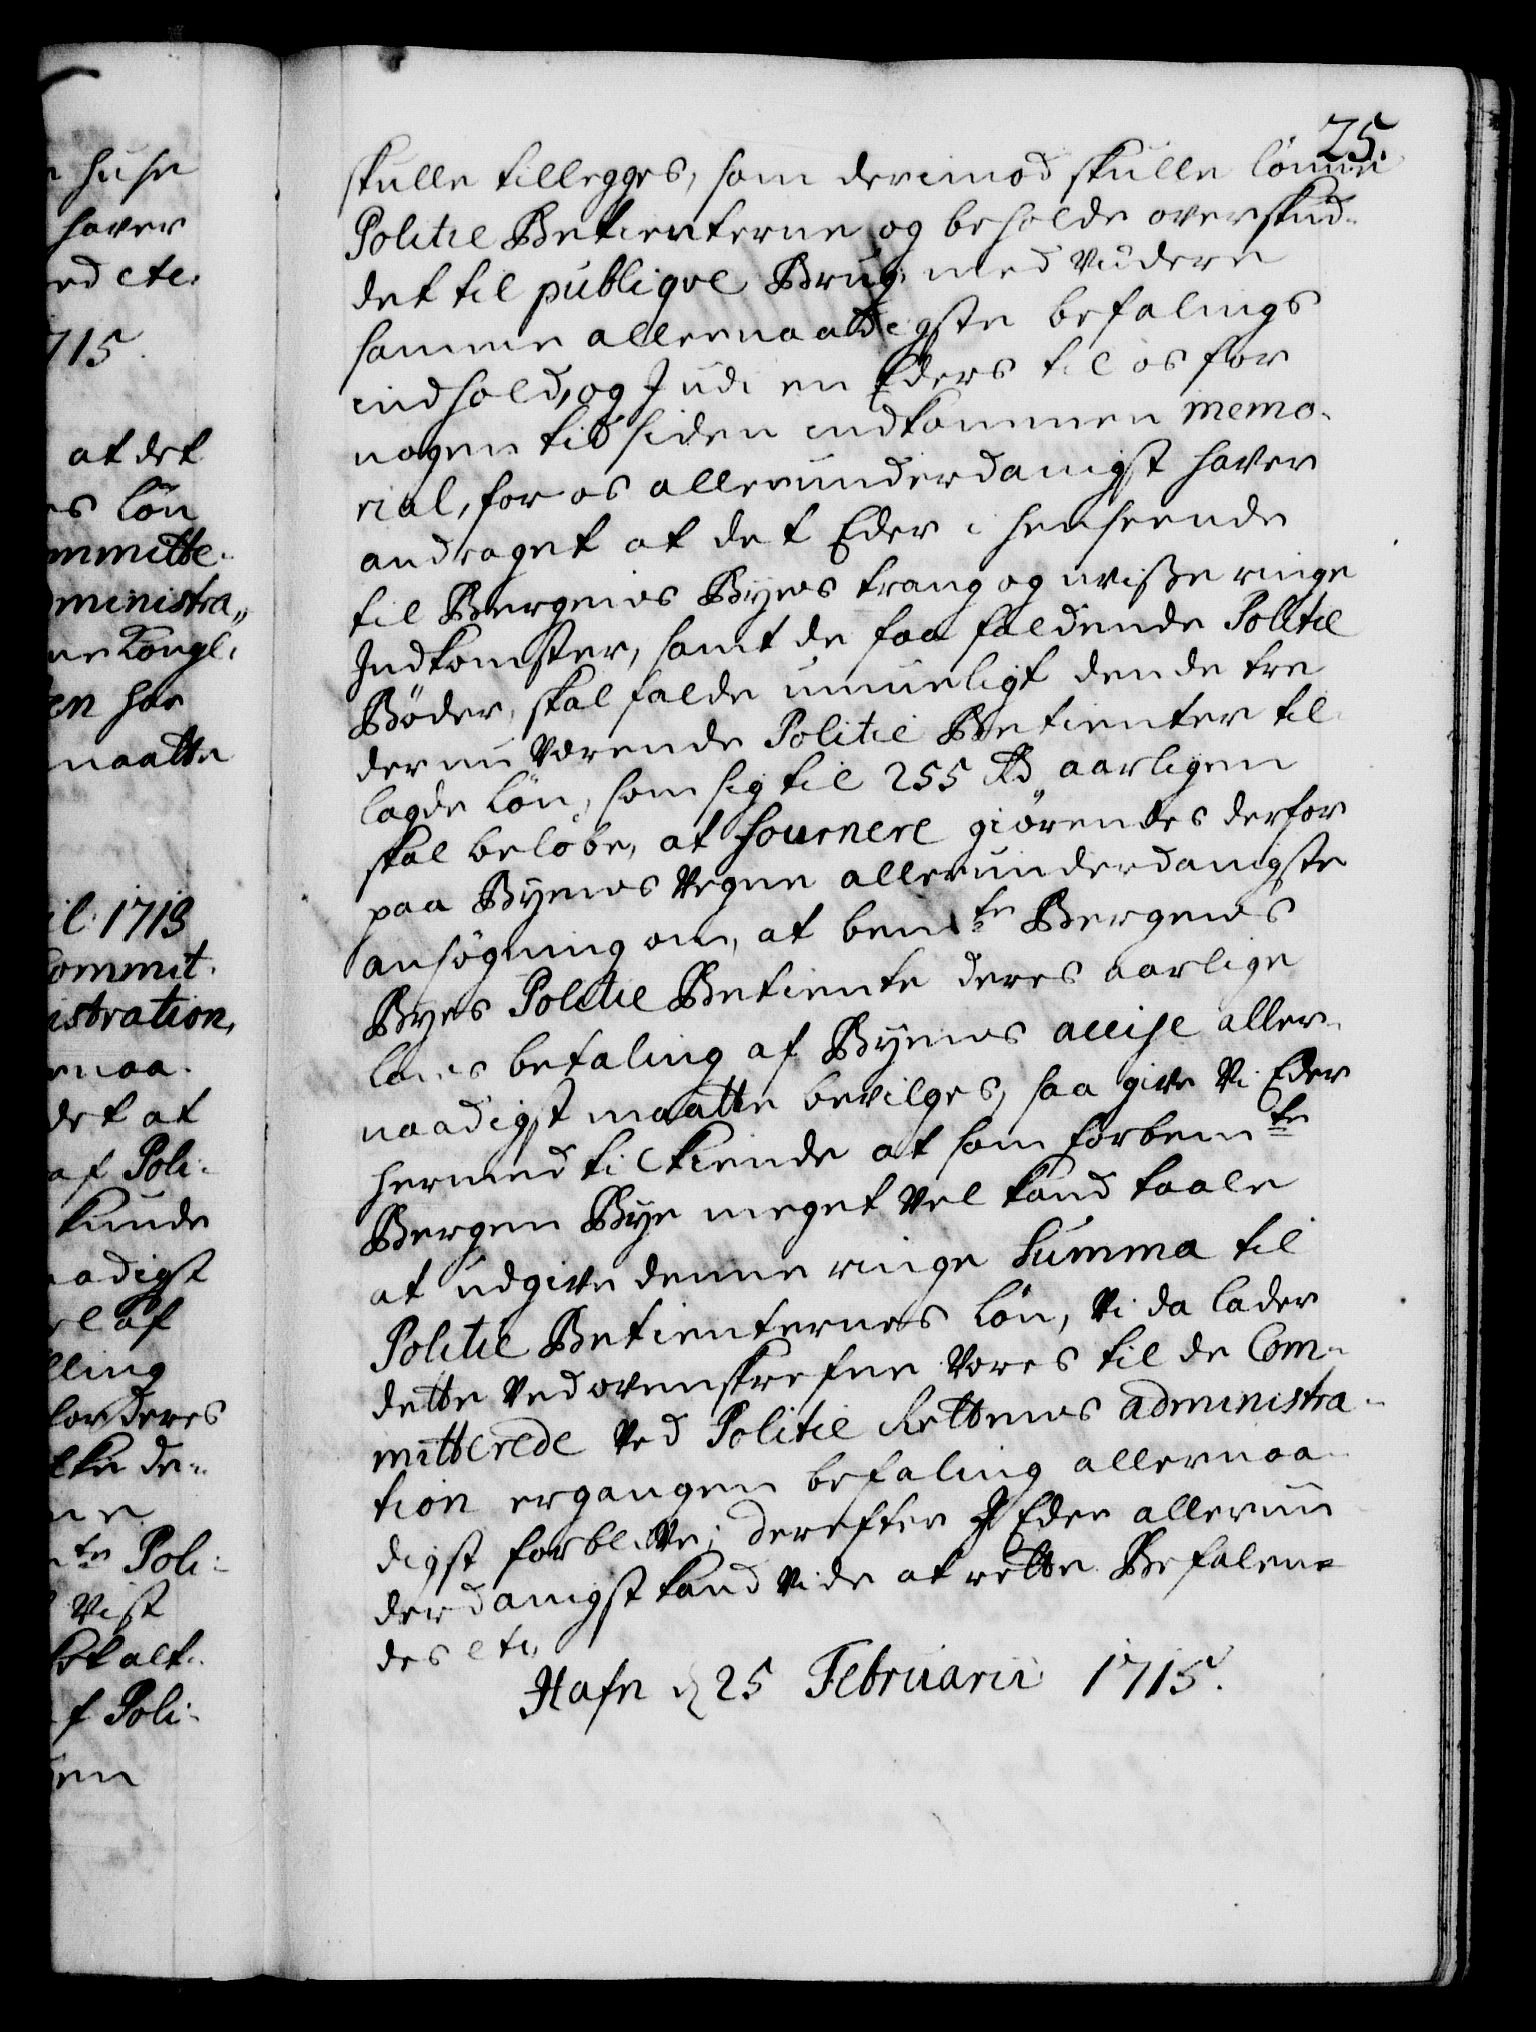 25.
skulle tillegges, som derimod skulle lönne
Politie Betienterne og beholde overskud-
det til publiqve Brug, med Videre
samme allernaadigste befalings
indhold, og I udi en Eders til os for
nogen tid siden indkommen memo-
rial, for os allerunderdanigst haver
andraget at det Eder i henseende
til Bergens Byes trang og uvisse ringe
Indkomster, samt de faa faldende Politie
Böder, skal falde umueligt dend de tre
der nu Værende Politie Betienter til
lagde Lön, som sig til 255 Rd aarligen
skal belöbe, at fournere giörendes derfor
paa Byens Vegne allerunderdanigste
ansögning om, at bemte Bergens
Byes Politie Betiente deres aarlige
löns betaling af Byens accise aller-
naadigst maatte bevilges, saa give Vi Eder
hermed tilkiende at som forbemte
Bergen Bye meget Vel kand taale
at udgive denne ringe Summa til
Politie Betienternes Lön, Vi da lader
dette Ved ovenskrefne Vores til de Com-
mitterede Ved Politie Rettens administra-
tion ergangen befaling allernaa-
digst forblive; Derefter I Eder allerun
derdanigst kand Vide at rette Befalen-
des etc.
Hafn d 25 Februarii 1715.
huse
haver
ed etc.
715.
at det
es Lön
ommitte-
dministra,,
ne Kongl.
en har
maatte
il 1713
Commit-
istration,
rnaa-
det at
af Poli-
kunde
aadigst
el af
lling
for deres
de-
ne
te Poli-
Vist
alt
f Poli-
en